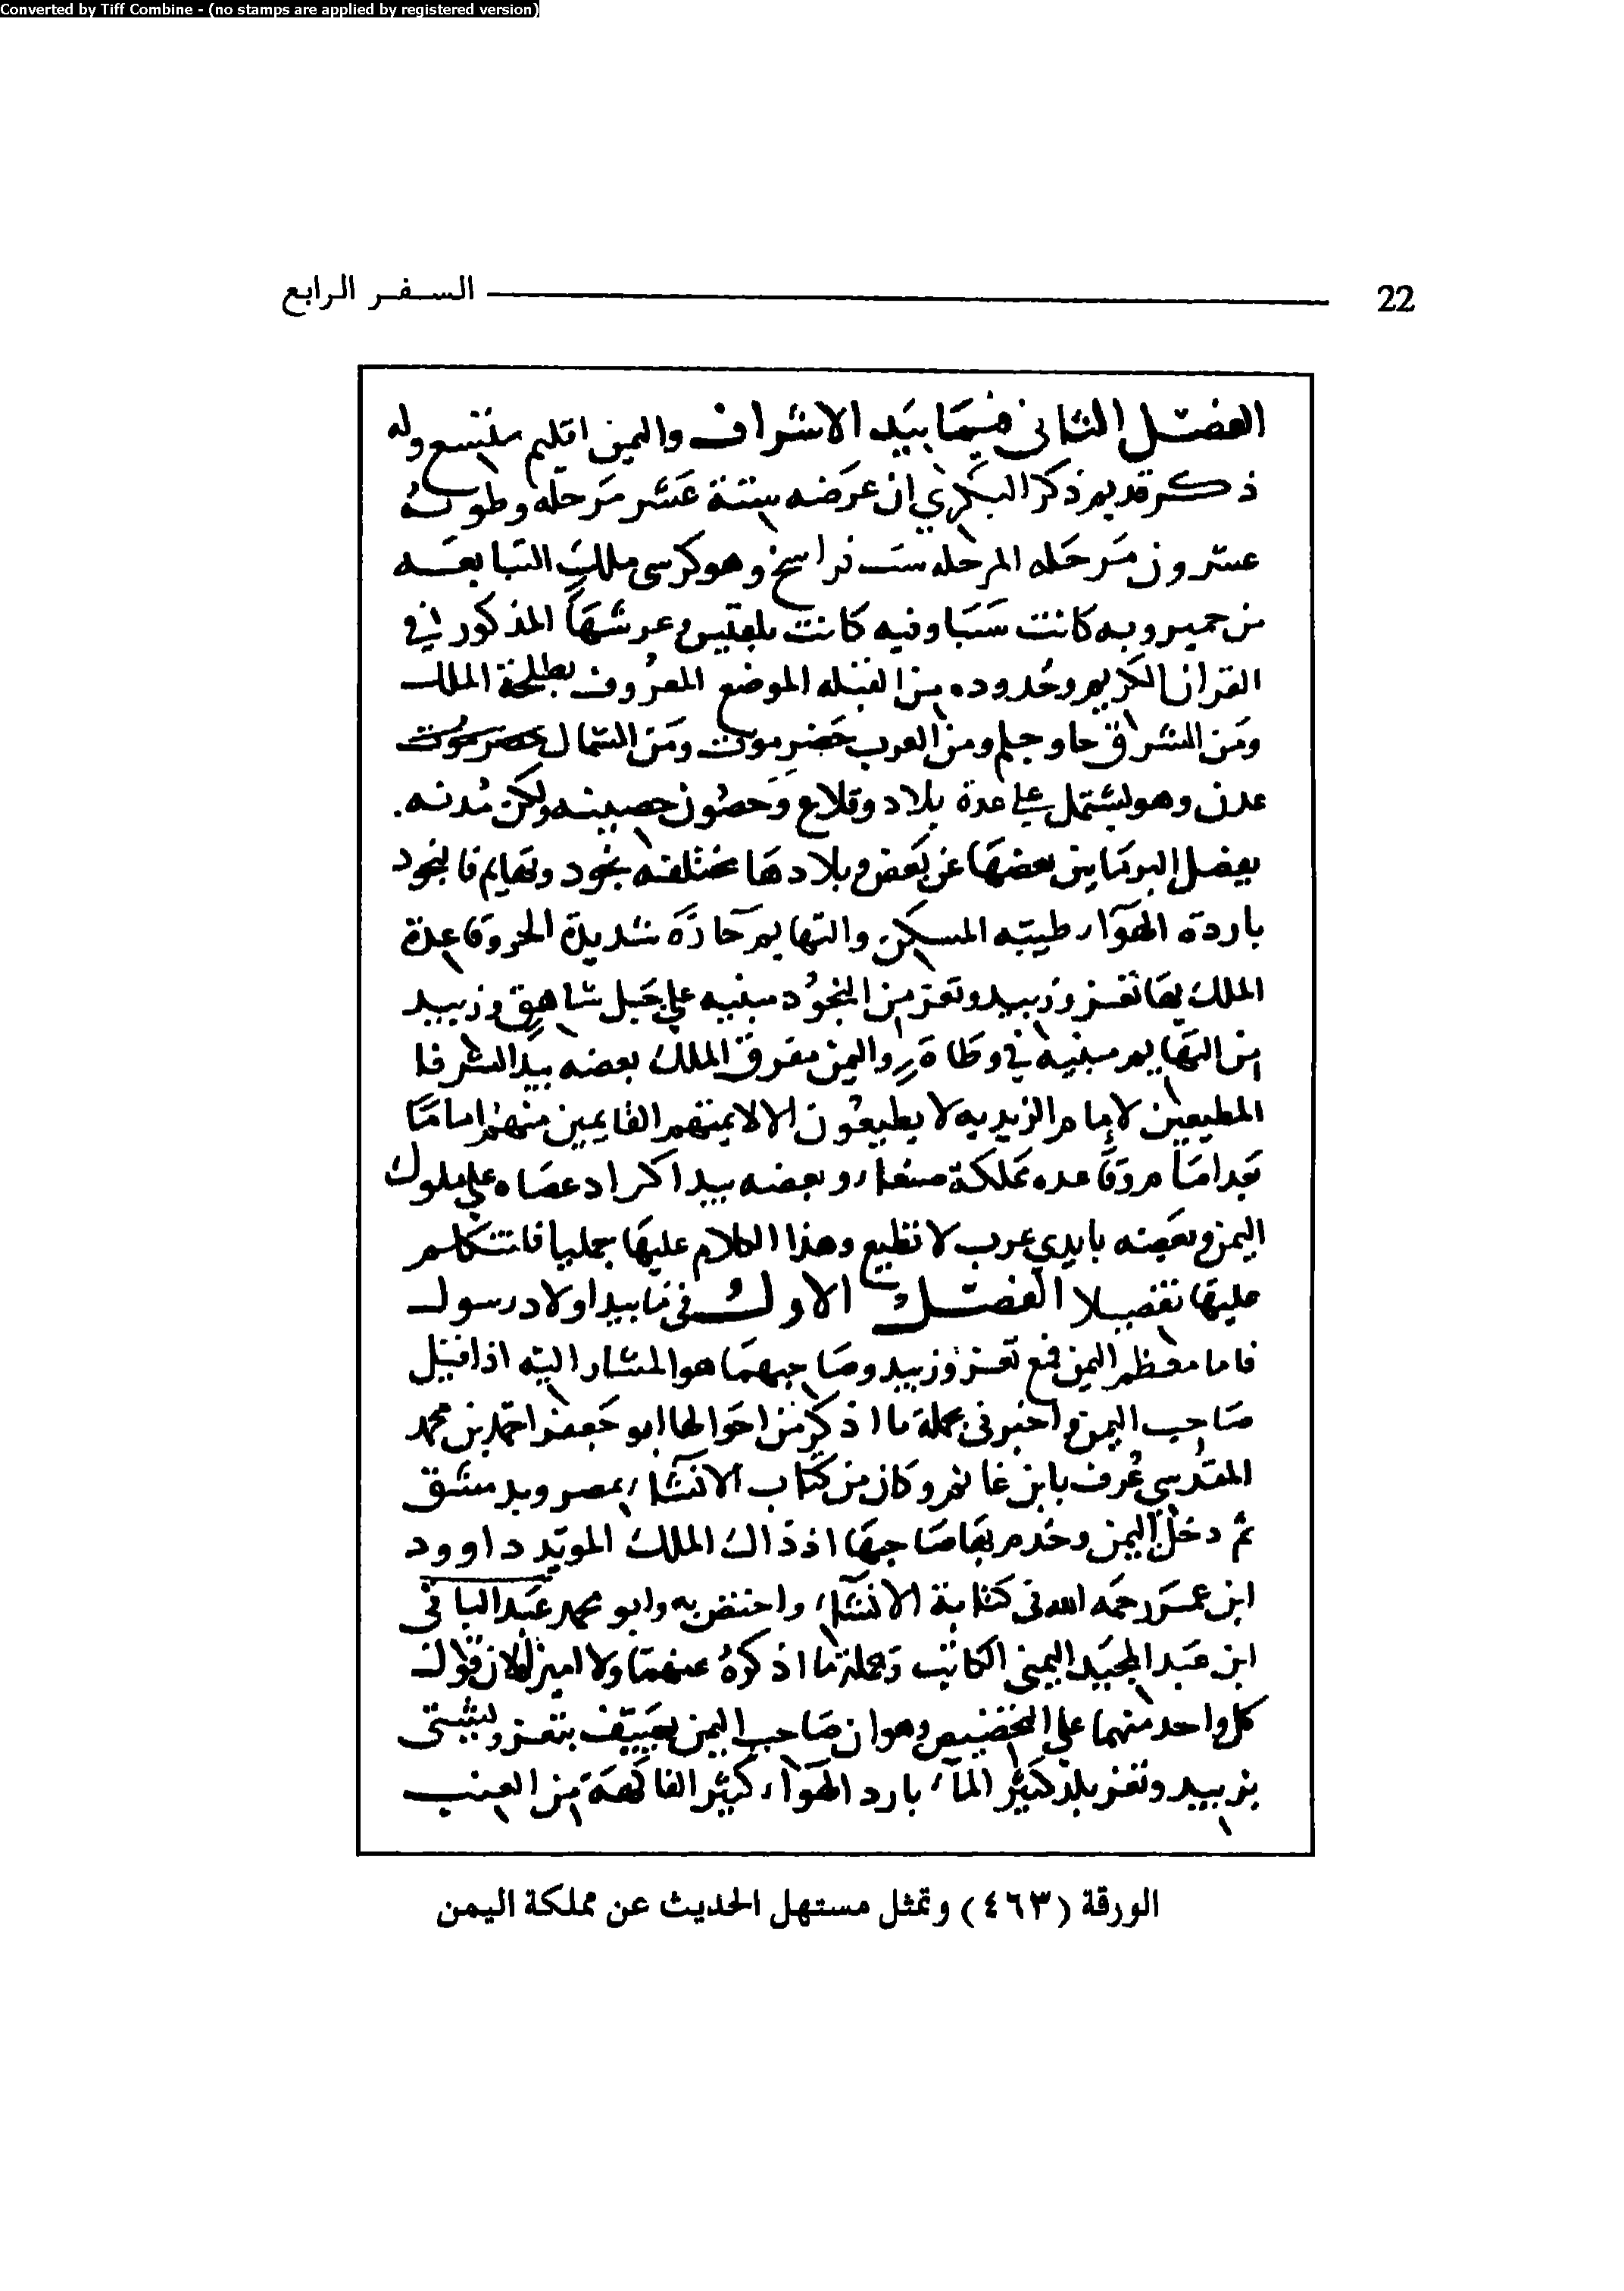 Converted by Tiff Combine - (no stamps are applied by registered version)
22 السفر الرابع
الفصل الثاني فيما بيد الاشراف واليمن اقليم متسع وله
ذكر قديم ذكر البكري ان عرضه ستة عشر مرحله وطوله
عشرون مرحله المرحله ست فراسخ وهو كرسي ملك التبابعه
من حمير وبه كانت سبا وفيه كانت بلقيس وعرشها المذكور في
القران الكريم وحدوده من القبله الموضع المعروف بطلحة الملك
ومن الشرق حا وحلم ومن الغرب حضرموت ومن الشمال حضرموت
عدن وهو يشتمل على عدة بلاد وقلاع وحصون حصينه ولكن مدنه
يفصل البر ما بين بعضها عن بعض وبلادها مختلفه نجود وتهايم فالنجود
باردة الهوآء طيبه المسكن والتهايم حارة شديدة الحر وقاعدة
الملك بها تعز وزبيد وتعز من النجود مبنيه على جبل شاهق وزبيد
من التهايم مبنية في وطاءة واليمن مفرق الملك بعضه بيد الشرفا
المطيعين لامام الزيديه لا يطيعون الا لايمتهم القايمين منهم اماما
بعد امام وقاعده مملكة صنعاء وبعضه بيد اكراد عصاه على ملوك
اليمن وبعضه بايدي عرب لا تطيع وهذا الكلام عليها جمليا فلنتكلم
عليها تفصيلا الفصل الاول في ما بيد اولاد رسول
فاما معظم اليمن فمع تعز وزبيد وصاحبهما هو المشار اليه اذا قيل
صاحب اليمن واخبرني بجملة ما اذكر من احوالها ابو جعفر احمد بن محمد
المقدسي عرف بابن غانم وكان من كتاب الانشآء بمصر وبدمشق
ثم دخل اليمن وخدم بها صاحبها اذ ذاك الملك المويد داوود
ابن عمر رحمه الله في كتابة الانشآء واختص به وابو محمد عبد الباقي
ابن عبد المجيد اليمني الكاتب وجملة ما اذكره عنهما ولا اميز الان قول
كل واحد منهما على التخصيص وهو ان صاحب اليمن يصيف بتعز ويشتي
بزبيد وتعز بلد كثير المآء بارد الهوآء كثير الفاكهة من العنب
الورقة (٤٦٣) وتمثل مستهل الحديث عن مملكة اليمن